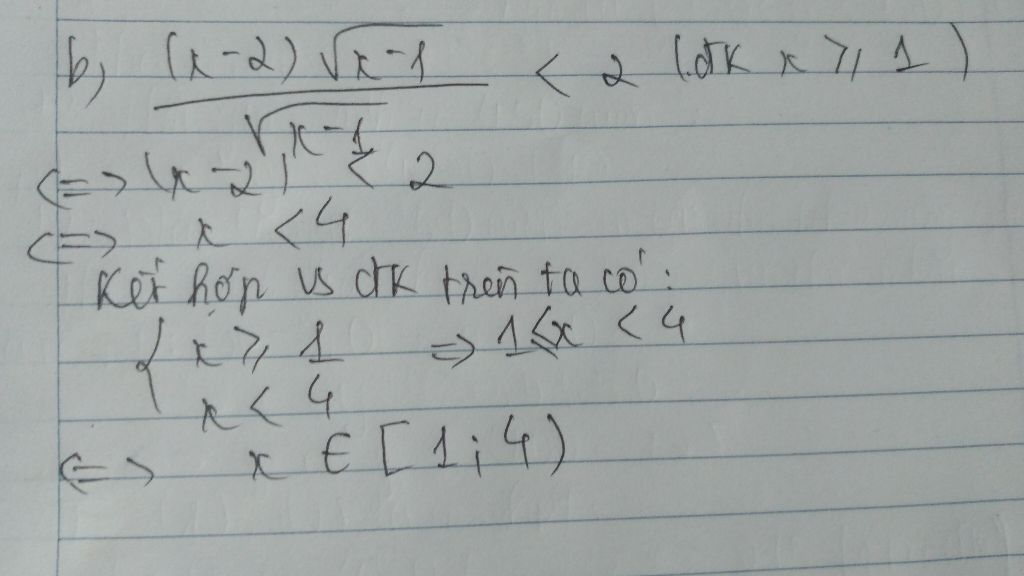 b, \frac{(x-2)\sqrt{x-1}}{\sqrt{x-1}} < 2 (đk x ⩾ 1)
<=> (x-2) < 2
<=> x < 4
Kết hợp vs đk trên ta có:
{ x ⩾ 1 => 1 ≤ x < 4
x < 4
<=> x ∈ [1; 4)